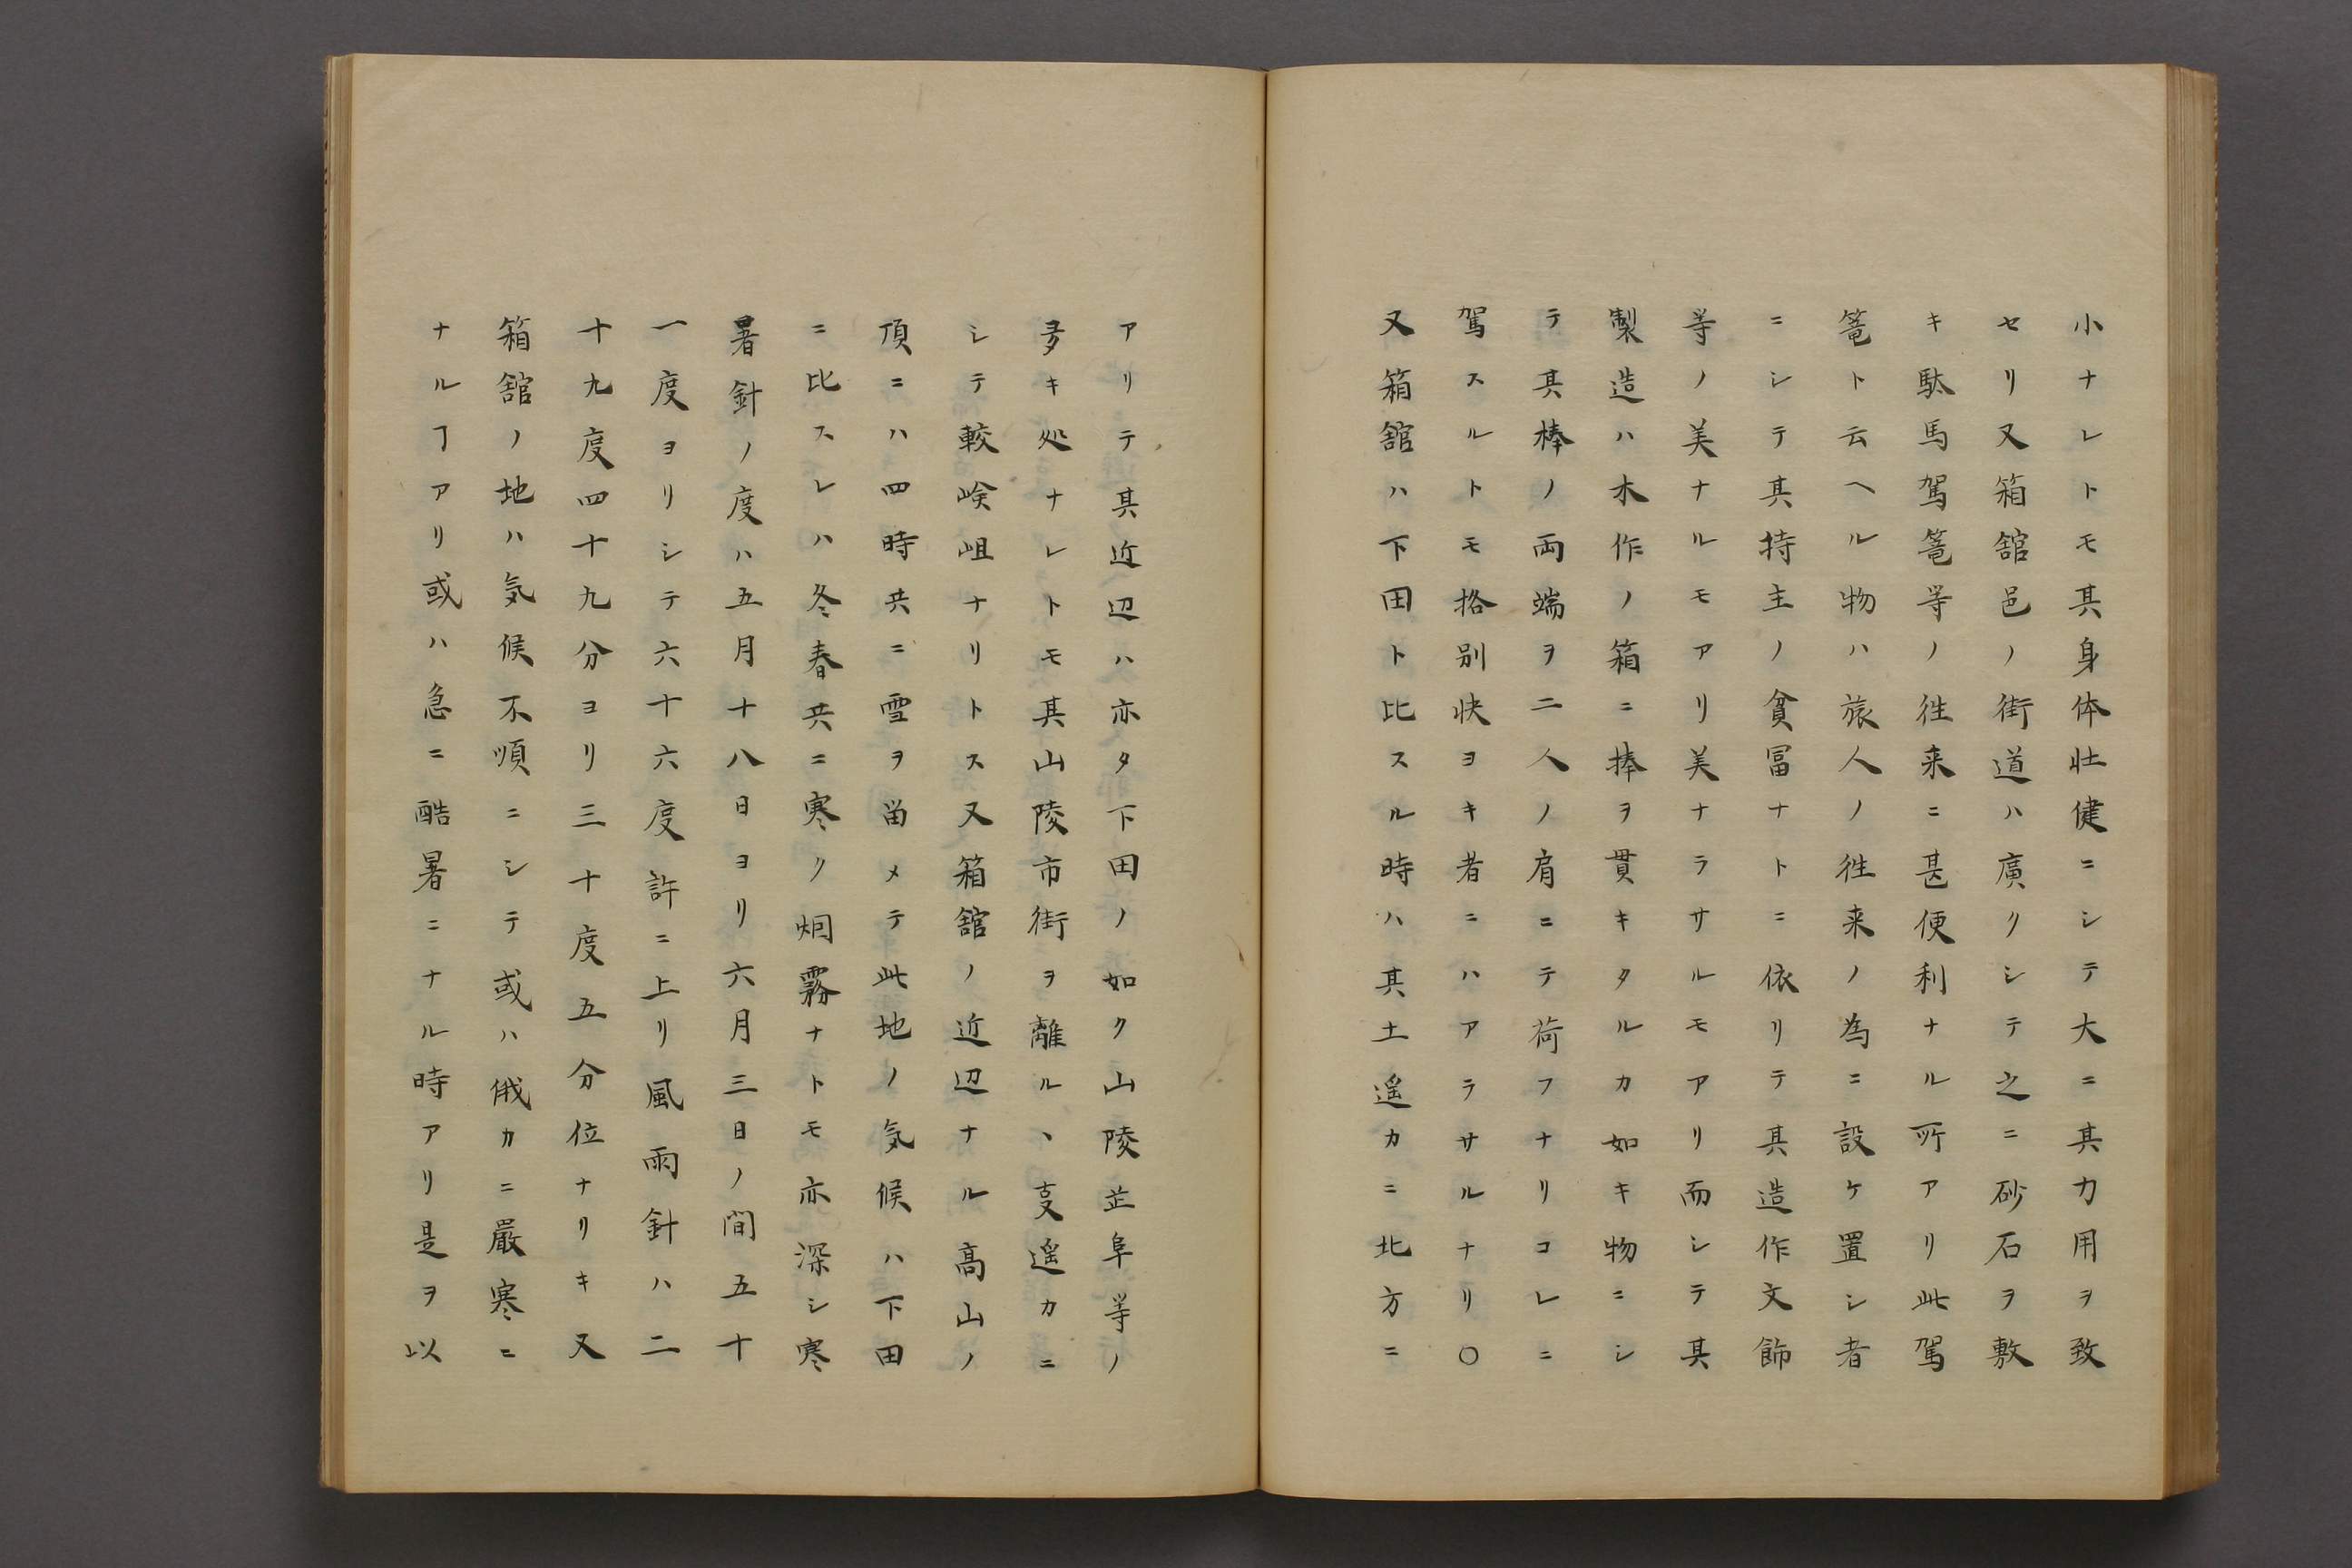 小ナレトモ其身体壮健ニシテ大ニ其力用ヲ致
セリ又箱舘邑ノ街道ハ廣クシテ之ニ砂石ヲ敷
キ駄馬駕篭等ノ徃来ニ甚便利ナル所アリ此駕
篭ト云ヘル物ハ旅人ノ徃来ノ為ニ設ケ置シ者
ニシテ其持主ノ貧冨ナトニ依リテ其造作文飾
等ノ美ナルモアリ美ナラサルモアリ而シテ其
製造ハ木作ノ箱ニ捧ヲ貫キタルカ如キ物ニシ
テ其棒ノ両端ヲ二人ノ肩ニテ荷フナリコレニ
駕スルトモ挌別快ヨキ者ニハアラサルナリ〇
又箱舘ハ下田ト比スル時ハ其土遥カニ北方ニ
アリテ其近辺ハ亦タ下田ノ如ク山陵並阜等ノ
多キ処ナレトモ其山陵市街ヲ離ルヽ叓遥カニ
シテ較嶮岨ナリトス又箱舘ノ近辺ナル高山ノ
頂ニハ四時共ニ雪ヲ畄メテ此地ノ気候ハ下田
ニ比スレハ冬春共ニ寒ク烟霧ナトモ亦深シ寒
暑針ノ度ハ五月十八日ヨリ六月三日ノ間五十
一度ヨリシテ六十六度許ニ上リ風雨針ハ二
十九度四十九分ヨリ三十度五分位ナリキ又
箱舘ノ地ハ気候不順ニシテ或ハ俄カニ嚴寒ニ
ナルヿアリ或ハ急ニ酷暑ニナル時アリ是ヲ以